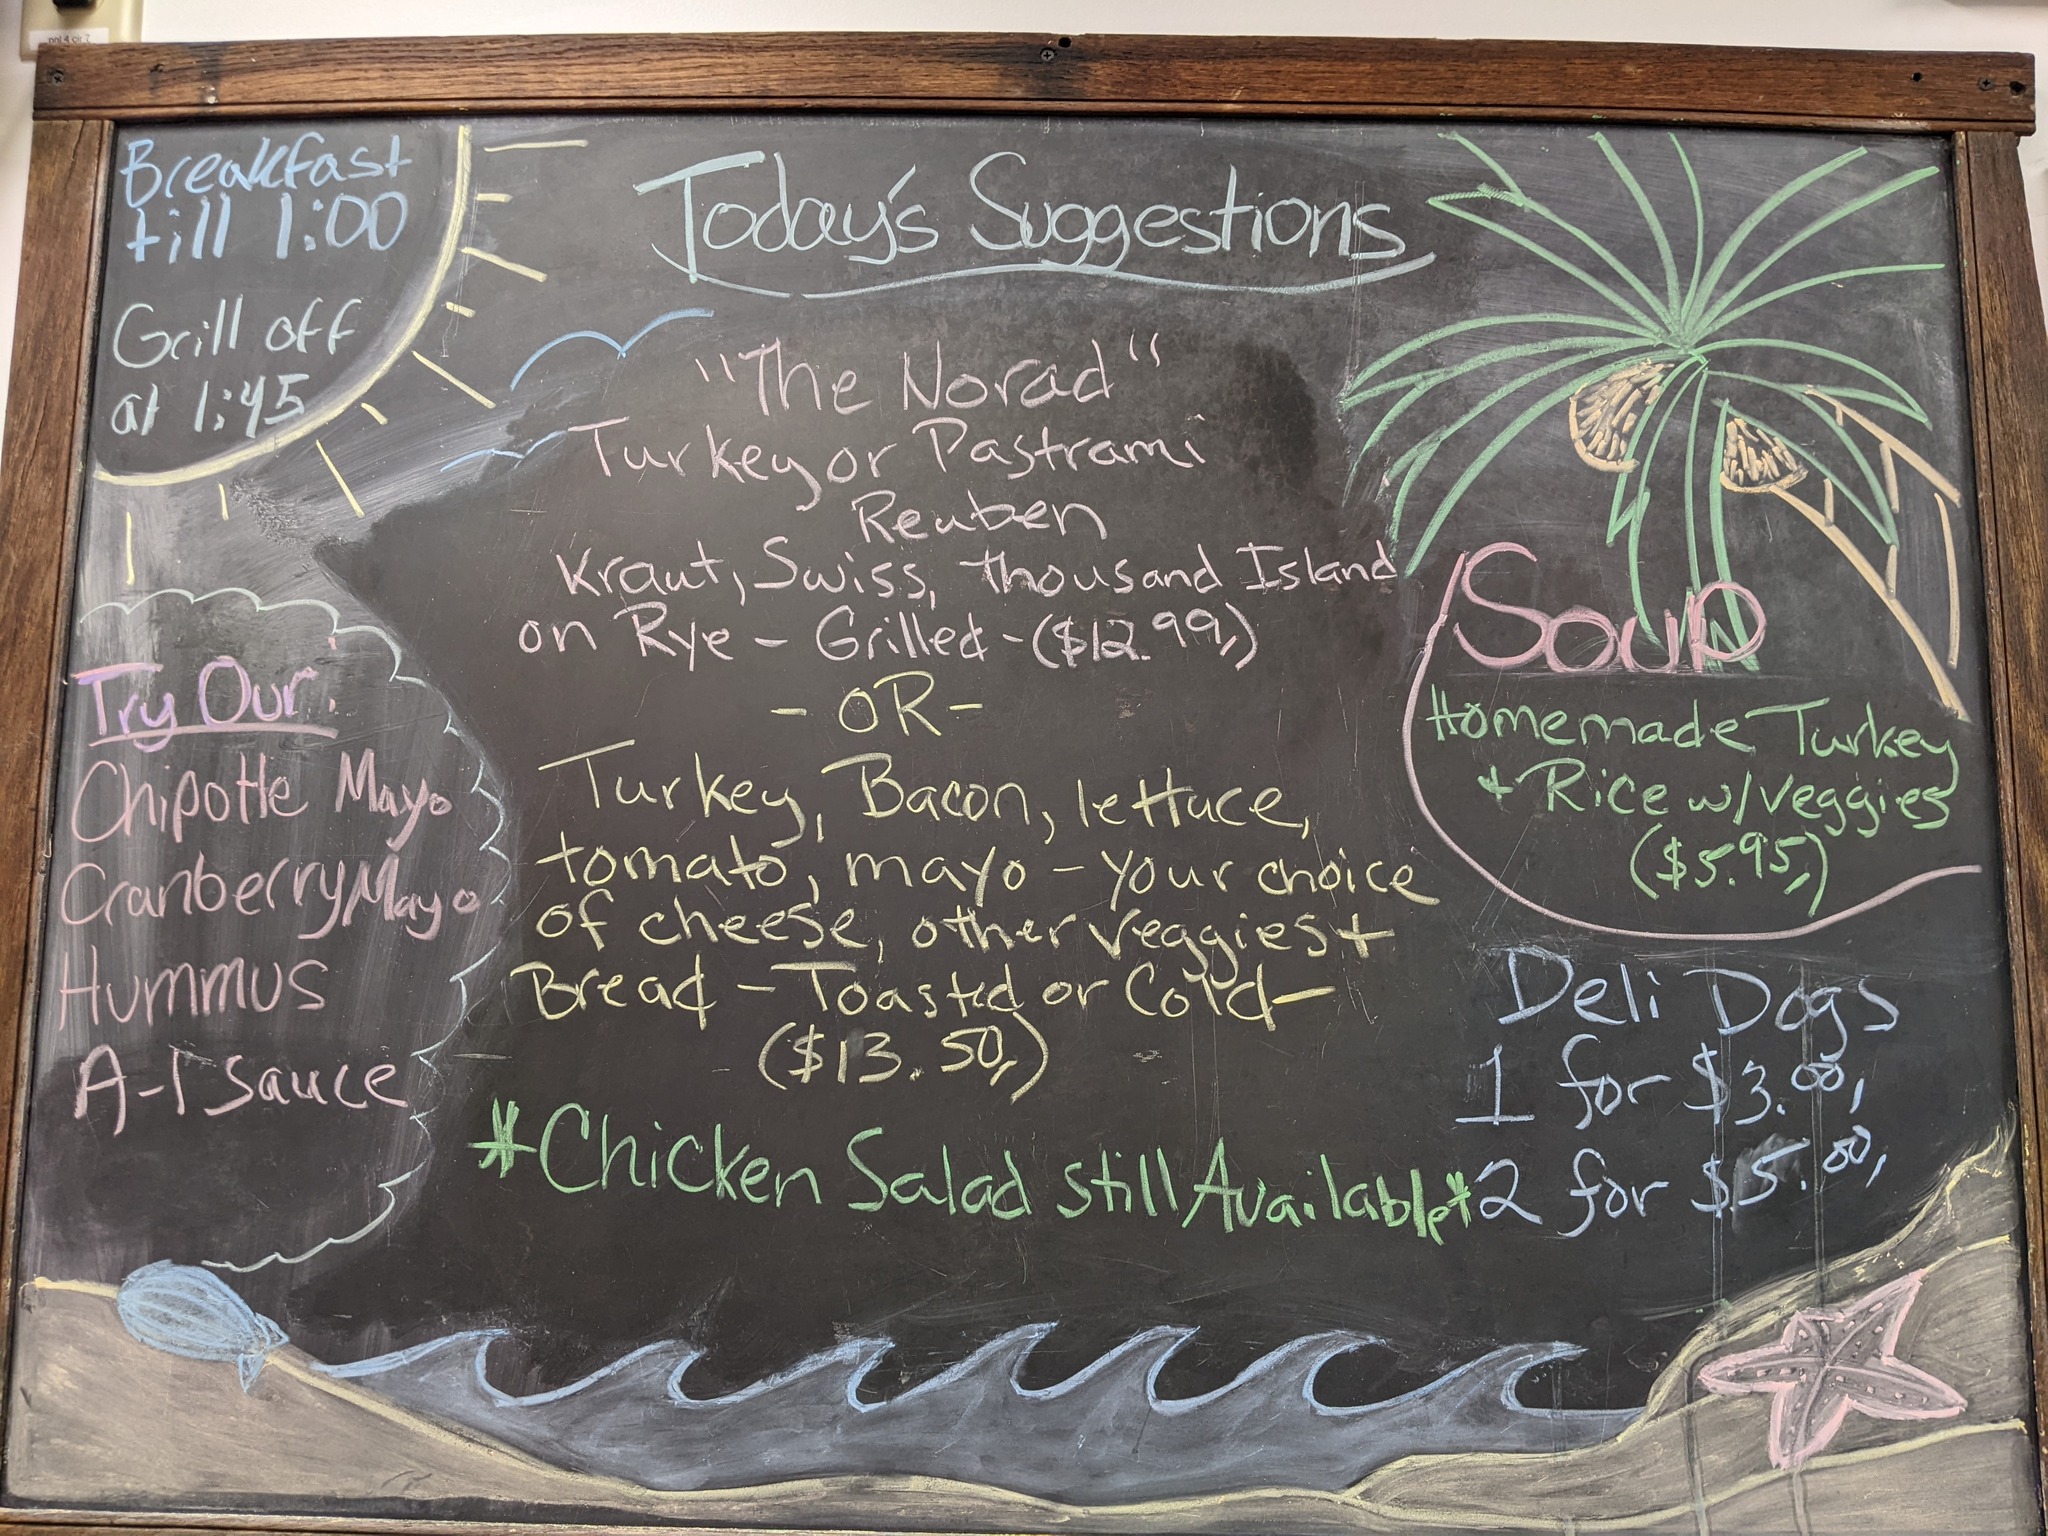 pnl 4 cir 7
Breakfast
till 1:00
Grill off
at 1:45
Today's Suggestions
"The Norad"
Turkey or Pastrami
Reuben
Kraut, Swiss, thousand Island
on Rye - Grilled - ($12.99,)
- OR -
Turkey, Bacon, lettuce,
tomato, mayo - your choice
of cheese, other veggies +
Bread - Toasted or Cold -
($13.50,)
*Chicken Salad still Available*
Try Our:
Chipotle Mayo
Cranberry Mayo
Hummus
A-1 sauce
Soup
Homemade Turkey
+ Rice w/veggies
($5.95,)
Deli Dogs
1 for $3.00,
2 for $5.00,